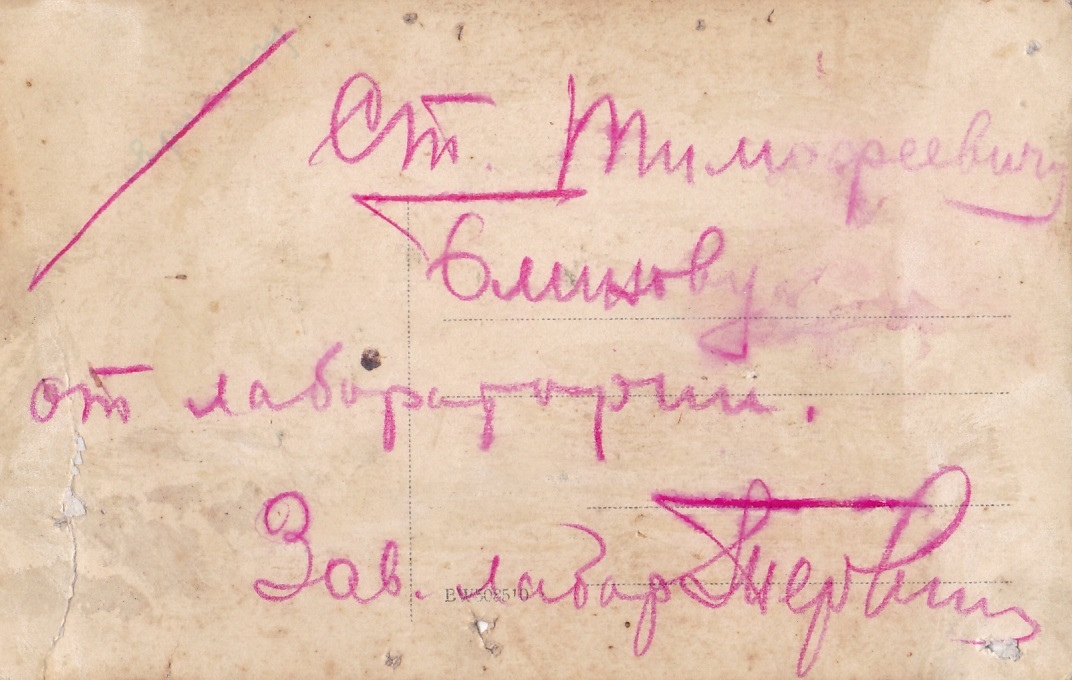 Ст. Тимофеевичу
Блинову
от лаборатории.
Зав. лабор
BW502510